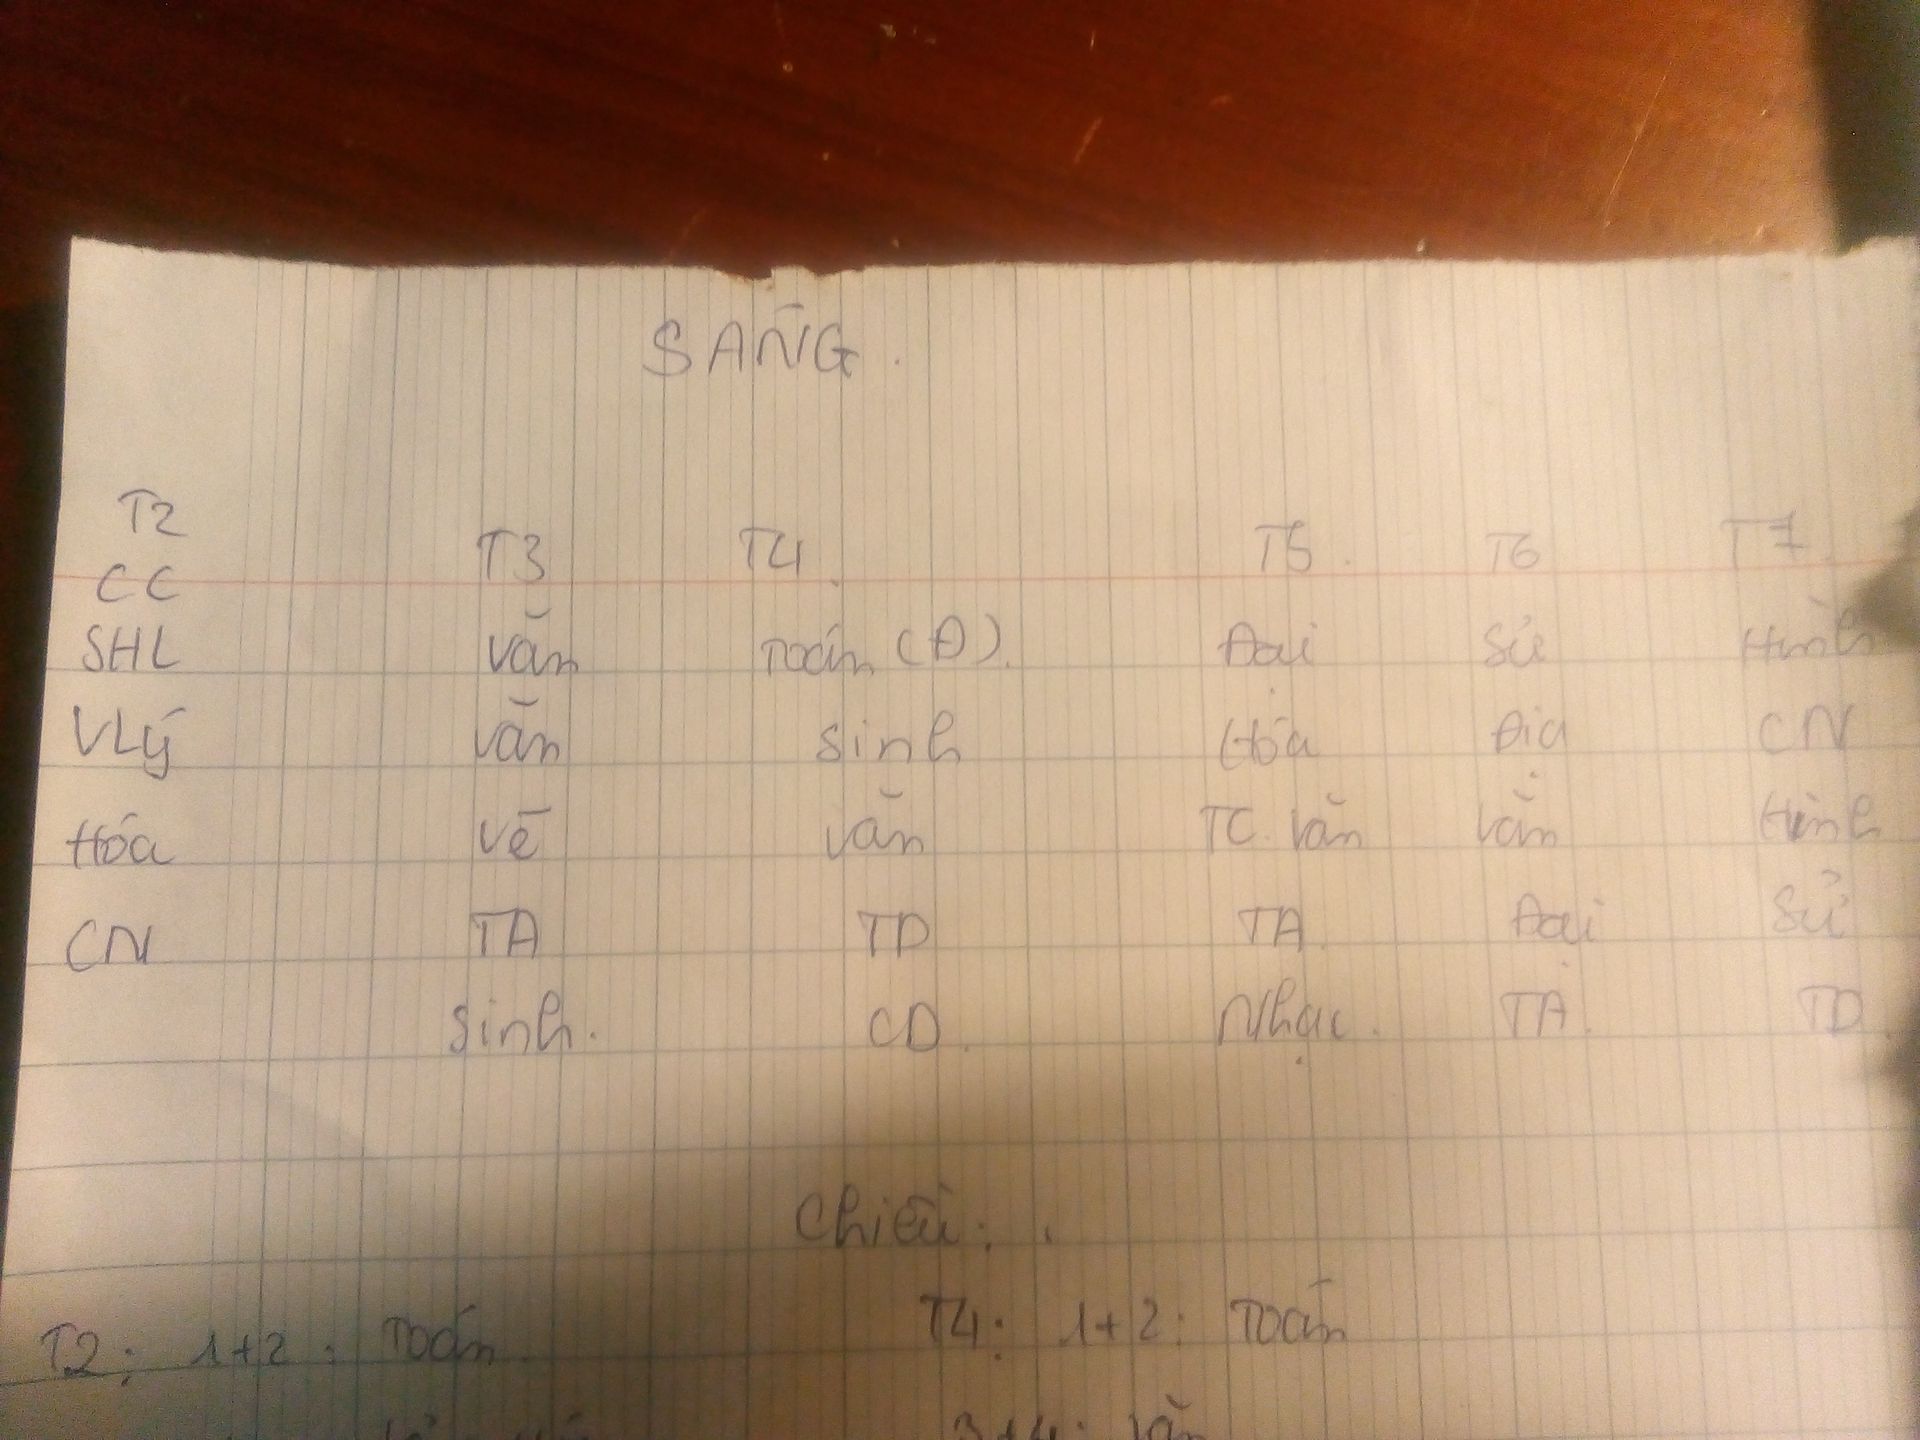 SÁNG.
T2 T3 T4. T5. T6 T7.
CC
SHL Văn Toán (Đ). Đại Sử Hình
VLý Văn Sinh Hóa Địa CN
Hóa Vẽ Văn TC. Văn Văn Hình
CN TA TD TA. Đại Sử
Sinh. CD. Nhạc. TA. TD
Chiều:
T2: 1+2: Toán T4: 1+2: Toán
3+4: Văn